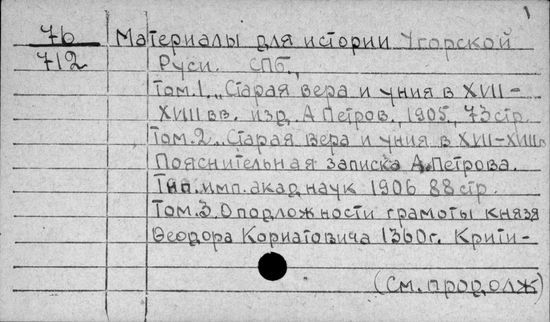 1
76 Материалы для истории Угорской
712 Руси. СПб.,
Том.1., Старая вера и уния в XVII-
XVIII вв. изд. А Петров. 1905, 73 стр.
Том.2., Старая вера и уния в XVII-XVIII в
Пояснительная записка А. Петрова.
Тип. имп. акад наук 1906 88 стр.
Том.3. О подложности грамоты князя
Ѳеодора Кориатовича 1360 г. Крити-
(См. продолж)